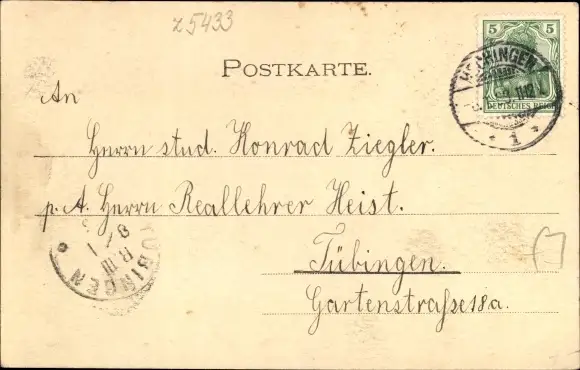 z 5433
POSTKARTE.
5 5
DEUTSCHES REICH
HECHINGEN
11-12
* 1 *
An
Herrn stud. Konrad Ziegler.
p. A. Herrn Reallehrer Heist.
Tübingen.
Gartenstraße 18a.
TÜBINGEN